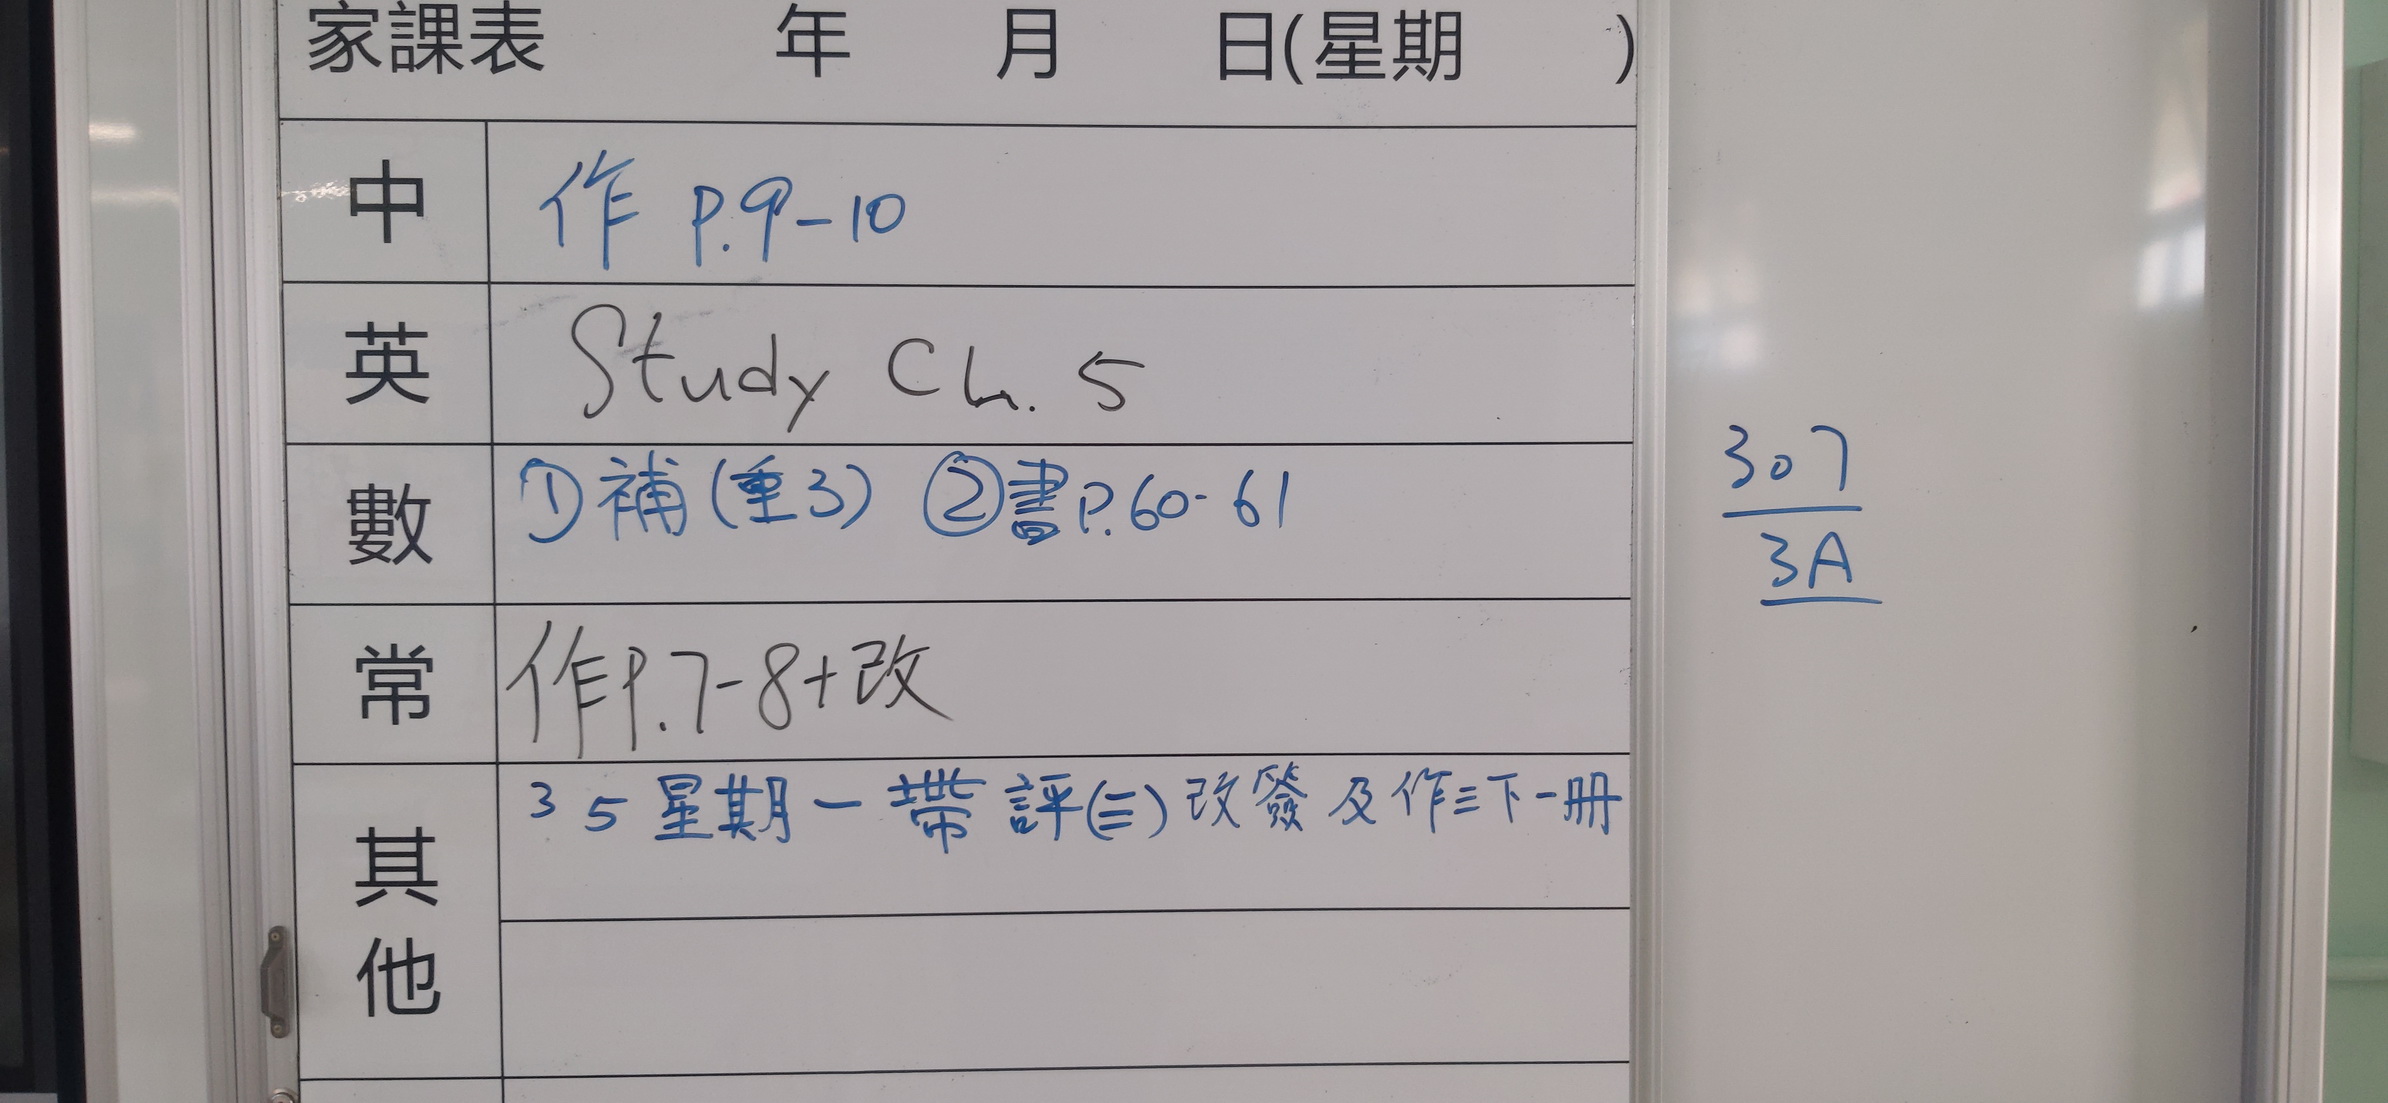 家課表 年 月 日(星期 )
中 作 P.9-10
英 Study Ch. 5
數 ①補(重3) ②書P.60-61
常 作P.7-8+改
其他 35星期一帶評(三)改發及作三下一冊
307
3A